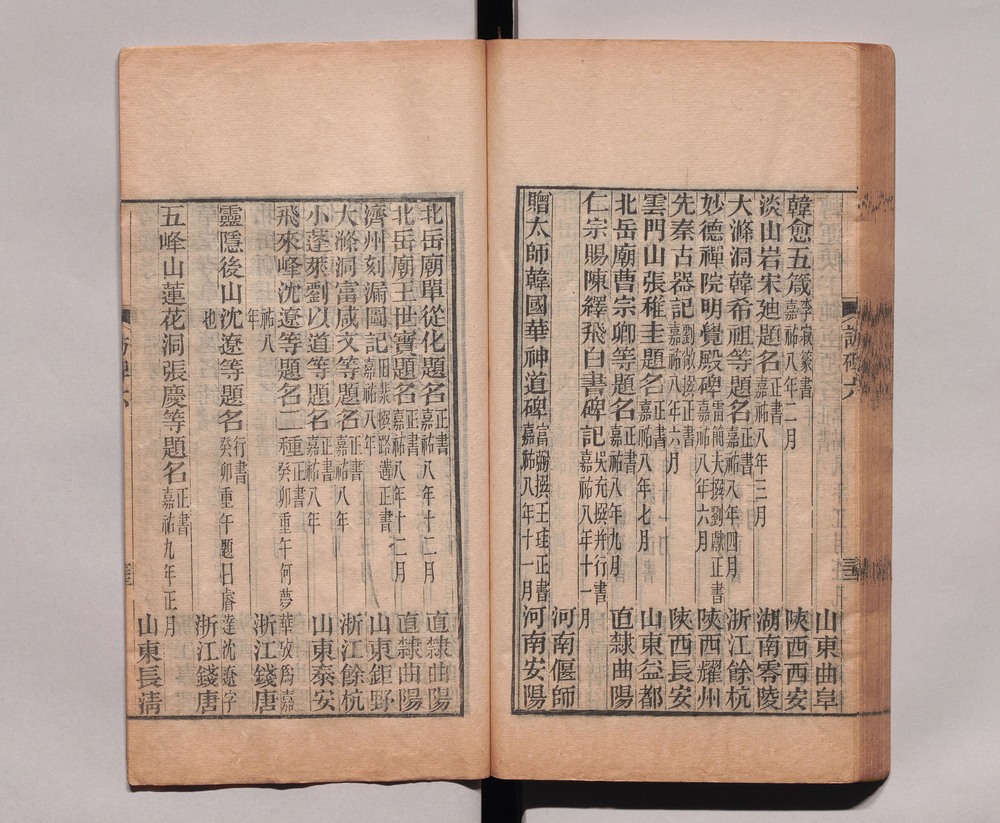 山東曲阜
韓愈五箴 李寂篆書 嘉祐八年二月 陝西西安
淡山岩宋迪題名 正書 嘉祐八年三月 湖南零陵
大滌洞韓希祖等題名 正書 嘉祐八年四月 浙江餘杭
妙德禪院明覺殿碑 雷簡夫撰劉 正書 嘉祐八年六月 陝西耀州
先秦古器記 劉敞撰正書 嘉祐八年六月 陝西長安
雲門山張稚圭題名 正書 嘉祐八年七月 山東益都
北岳廟曹宗卿等題名 正書 嘉祐八年九月 直隸曲陽
仁宗賜陳繹飛白書碑記 吳充撰并行書 嘉祐八年十一月
河南偃師
贈太師韓國華神道碑 富弼撰王珪正書 嘉祐八年十一月 河南安陽
訪碑六
北岳廟單從化題名 正書 嘉祐八年十二月 直隸曲陽
北岳廟王世寶題名 正書 嘉祐八年十二月 直隸曲陽
濟州刻漏圖記 田棐撰路 正書 嘉祐八年 山東鉅野
大滌洞富咸文等題名 正書 嘉祐八年 浙江餘杭
小蓬萊劉以道等題名 正書 嘉祐八年 山東泰安
飛來峰沈遼等題名二種 正書 癸卯重午何夢華攷爲嘉
祐八年 浙江錢唐
靈隱後山沈遼等題名 行書 癸卯重午題曰睿達沈遼字
也 浙江錢唐
五峰山蓮花洞張慶等題名 正書 嘉祐九年正月
山東長清